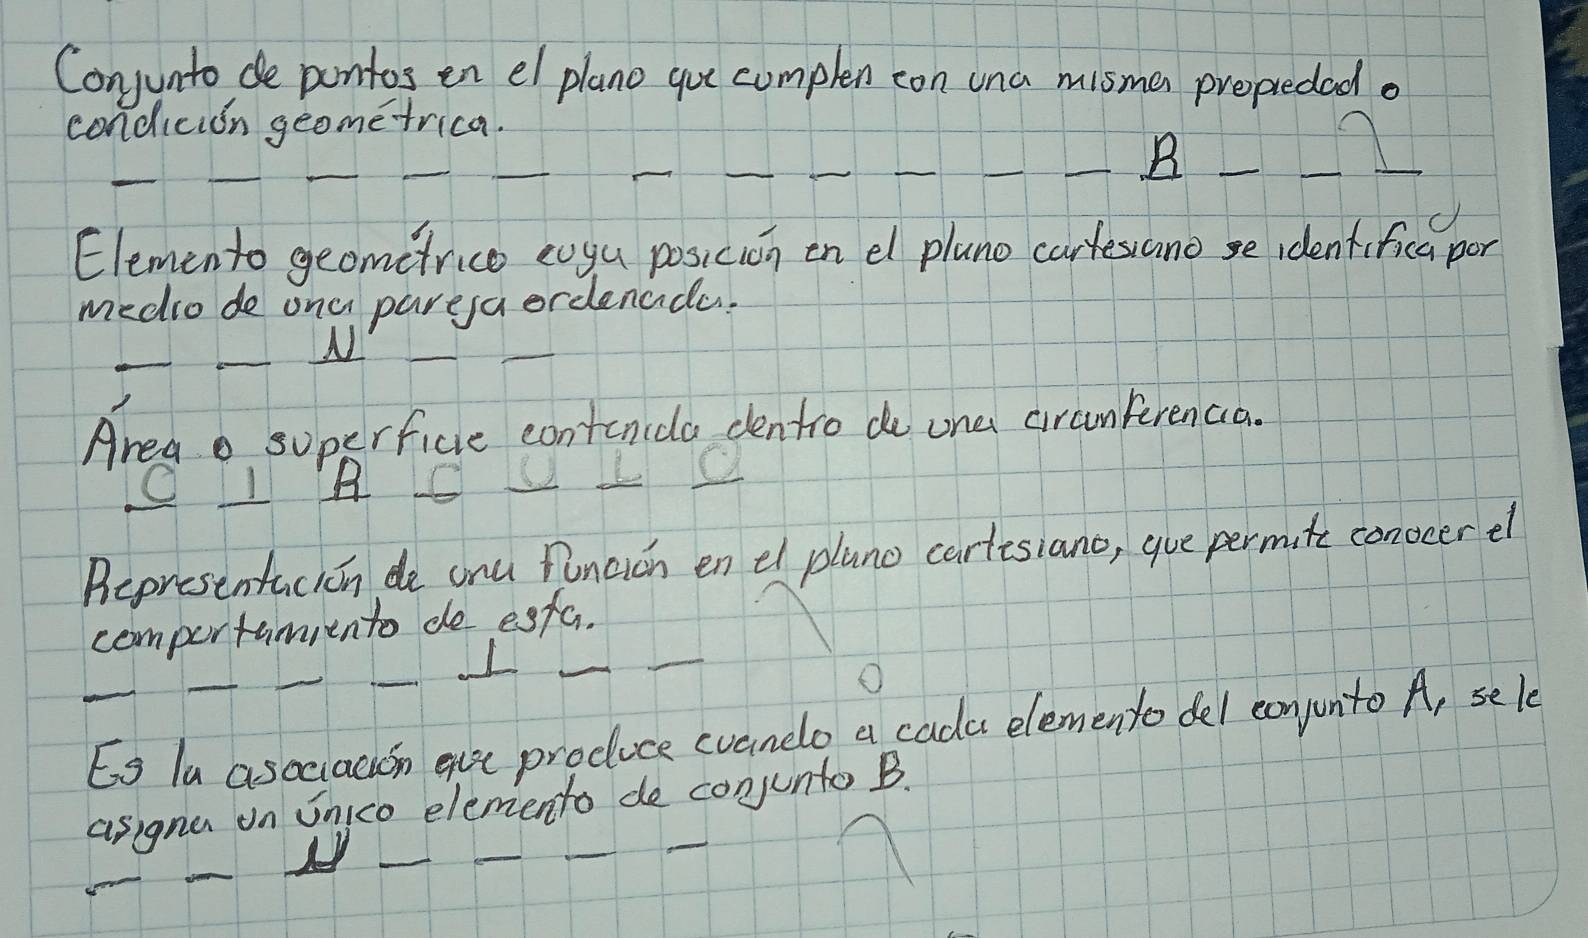 Conjunto de puntos en el plano que cumplen con una misma propiedad o
condición geométrica.
_ _ _ _ _ _ _ _ _ _ _ R _ _ _
Elemento geométrico cuya posición en el plano cartesiano se identifica por
medio de una pareja ordenada.
_ _ N _ _
Área o superficie contenida dentro de una circunferencia.
C I R C U L O
Representación de una función en el plano cartesiano, que permite conocer el
comportamiento de esta.
_ _ _ _ I _ _
Es la asociación que produce cuando a cada elemento del conjunto A, se le
asigna un único elemento de conjunto B.
_ _ N _ _ _ _